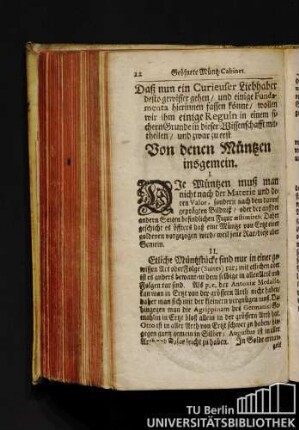 22 Geöfnete Müntz-Cabinet.
Daß nun ein Curieuser Liebhaber
desto gewisser gehen / und einige Funda-
menta hierinnen fassen könne / wollen
wir ihm einige Reguln in einem si-
chern Grunde in dieser Wissenschafft mit-
theilen / und zwar zu erst
Von denen Müntzen
insgemein.
I.
Die Müntzen muß man
nicht nach der Materie und ih-
ren Valor, sondern nach dem darauf
geprägten Bildniß / oder der auf der
andern Seiten befindlichen Figur æstimiren. Daher
geschicht es öffters daß eine Müntze von Ertzt einer
goldenen vorgezogen wird / weil jene Rar / diese aber
Gemein.
II.
Etliche Müntzstücke sind nur in einer ge-
wissen Art oder Folge (Suite) rar; mit etlichen aber
ist es anders bewant / in dem selbige in allerley
Folgen rar sind. Als z.e. der Antonia Medail-
len kan man in Ertzt von der grösten Arth nicht haben
daher man sich mit der kleinern vergnügen muß. Da
hingegen man die Agrippinam des Germanici Ge-
mahlin in Ertzt bloß allein in der grösten Arth hat.
Otto ist in aller Arth von Ertzt schwer zu haben / hin-
gegen gantz gemein in Silber; Augustus ist in aller
leicht zu haben. In Golde
TU Berlin
UNIVERSITÄTSBIBLIOTHEK